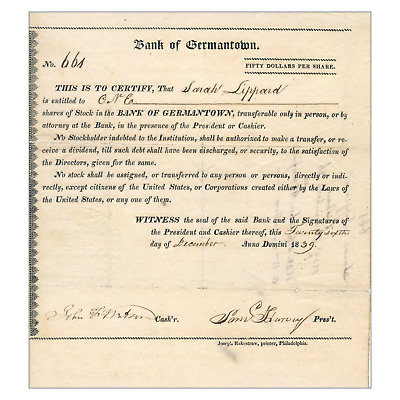 Bank of Germantown.
No. 661
FIFTY DOLLARS PER SHARE.
THIS IS TO CERTIFY, That Sarah Lippard
is entitled to One
shares of Stock in the BANK OF GERMANTOWN, transferable only in person, or by
attorney at the Bank, in the presence of the President or Cashier.
No Stockholder indebted to the Institution, shall be authorized to make a transfer, or re-
ceive a dividend, till such debt shall have been discharged, or security, to the satisfaction of
the Directors, given for the same.
No stock shall be assigned, or transferred to any person or persons, directly or indi-
rectly, except citizens of the United States, or Corporations created either by the Laws of
the United States, or any one of them.
WITNESS the seal of the said Bank and the Signatures of
the President and Cashier thereof, this Twenty Sixth
day of December Anno Domini 1839.
John F Watson Cash'r. Saml Harvey Pres't.
Joseph Rakestraw, printer, Philadelphia.